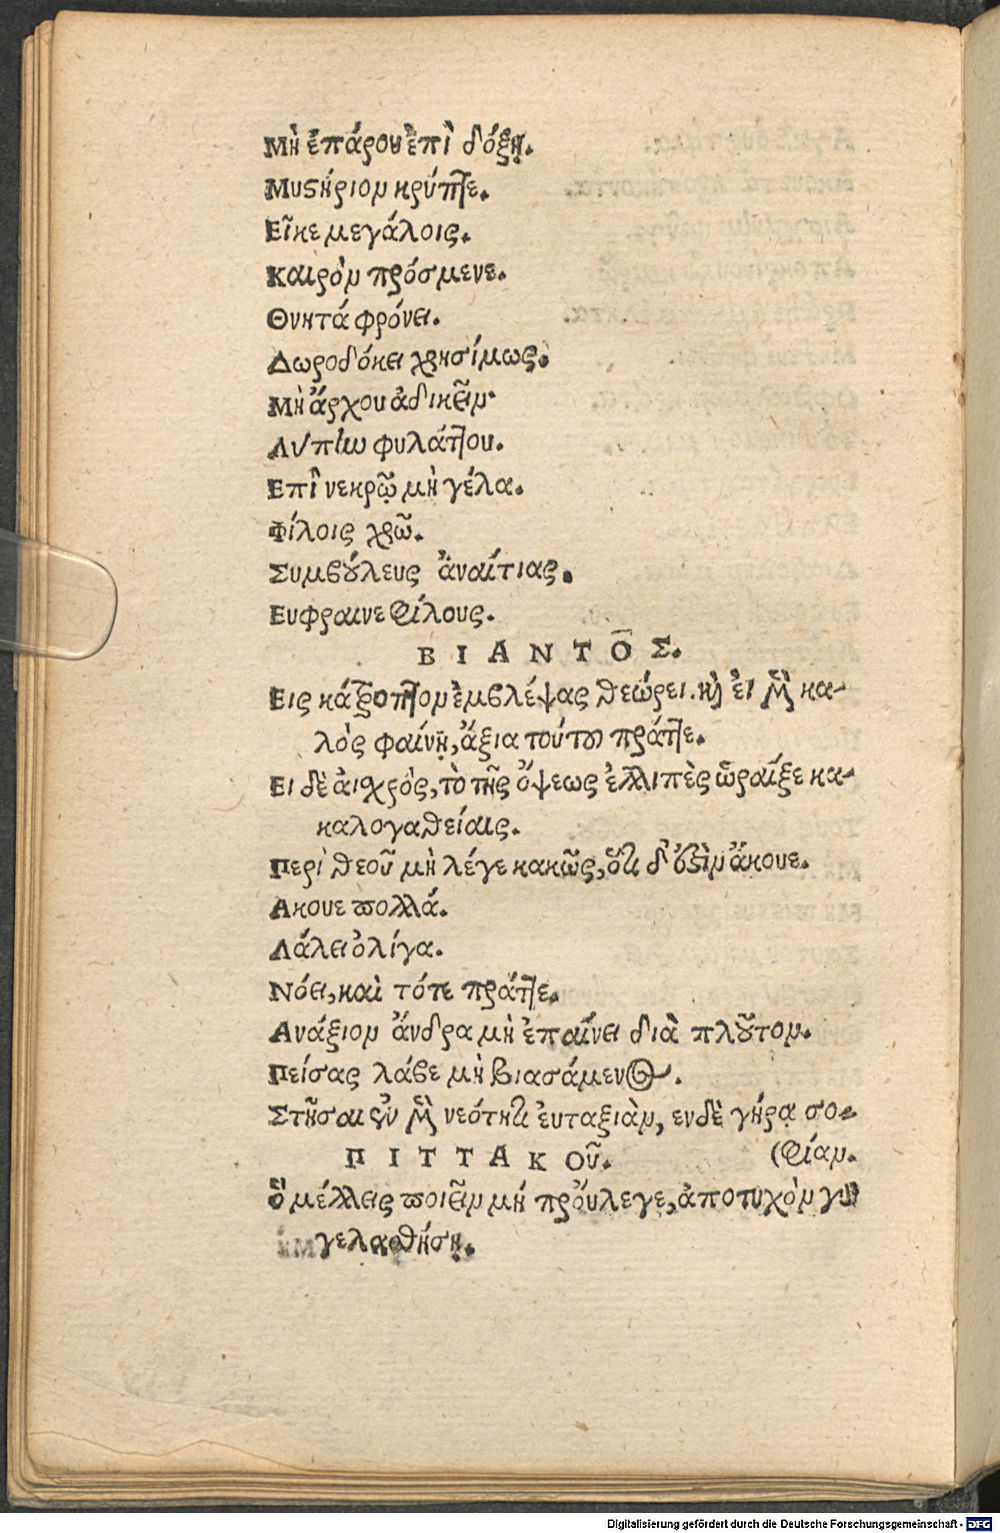 Μὴ ἐπάρου ἐπὶ δόξῃ.
Μυστήριον κρύπτε.
Εἶκε μεγάλοις.
Καιρὸν πρόσμενε.
Θνητά φρόνει.
Δωροδόκει χρησίμως.
Μὴ ἄρχου ἀδικεῖν.
Λύπην φυλάττου.
Επὶ νεκρῷ μὴ γέλα.
Φίλοις χρῶ.
Συμβούλευς ἀναίτιας.
Ευφραινε φίλους.
ΒΙΑΝΤΟ͂Σ.
Εις κάτροπτον ἐμβλέψας θεώρει. κὴ ἐι μὲν κα-
λὸς φαίνῃ, ἄξια τούτου πράττε.
Ει δὲ ἀισχρὸς, τὸ τῆς ὄψεως ἐλλιπὲς ὡράϊζε κα-
καλογαθείαις.
Περὶ θεοῦ μὴ λέγε κακῶς, ὅτι δ' ἐστὶν ἄκουε.
Ακουε πολλά.
Λάλει ὀλίγα.
Νόει, καὶ τότε πράττε.
Ανάξιον ἄνδρα μὴ ἐπαίνει διὰ πλοῦτον.
Πείσας λάβε μὴ βιασάμενος.
Στῆσαι ἐν μὲν νεότητι ἐυταξιὰν, εν δὲ γήρᾳ σο-
ΠΙΤΤΑΚΟῦ. (φίαν.
Ὃ μέλλεις ποιεῖν μή πρόυλεγε, ἀποτυχὸν γὰρ
γελασθήσῃ.
Digitalisierung gefördert durch die Deutsche Forschungsgemeinschaft - DFG